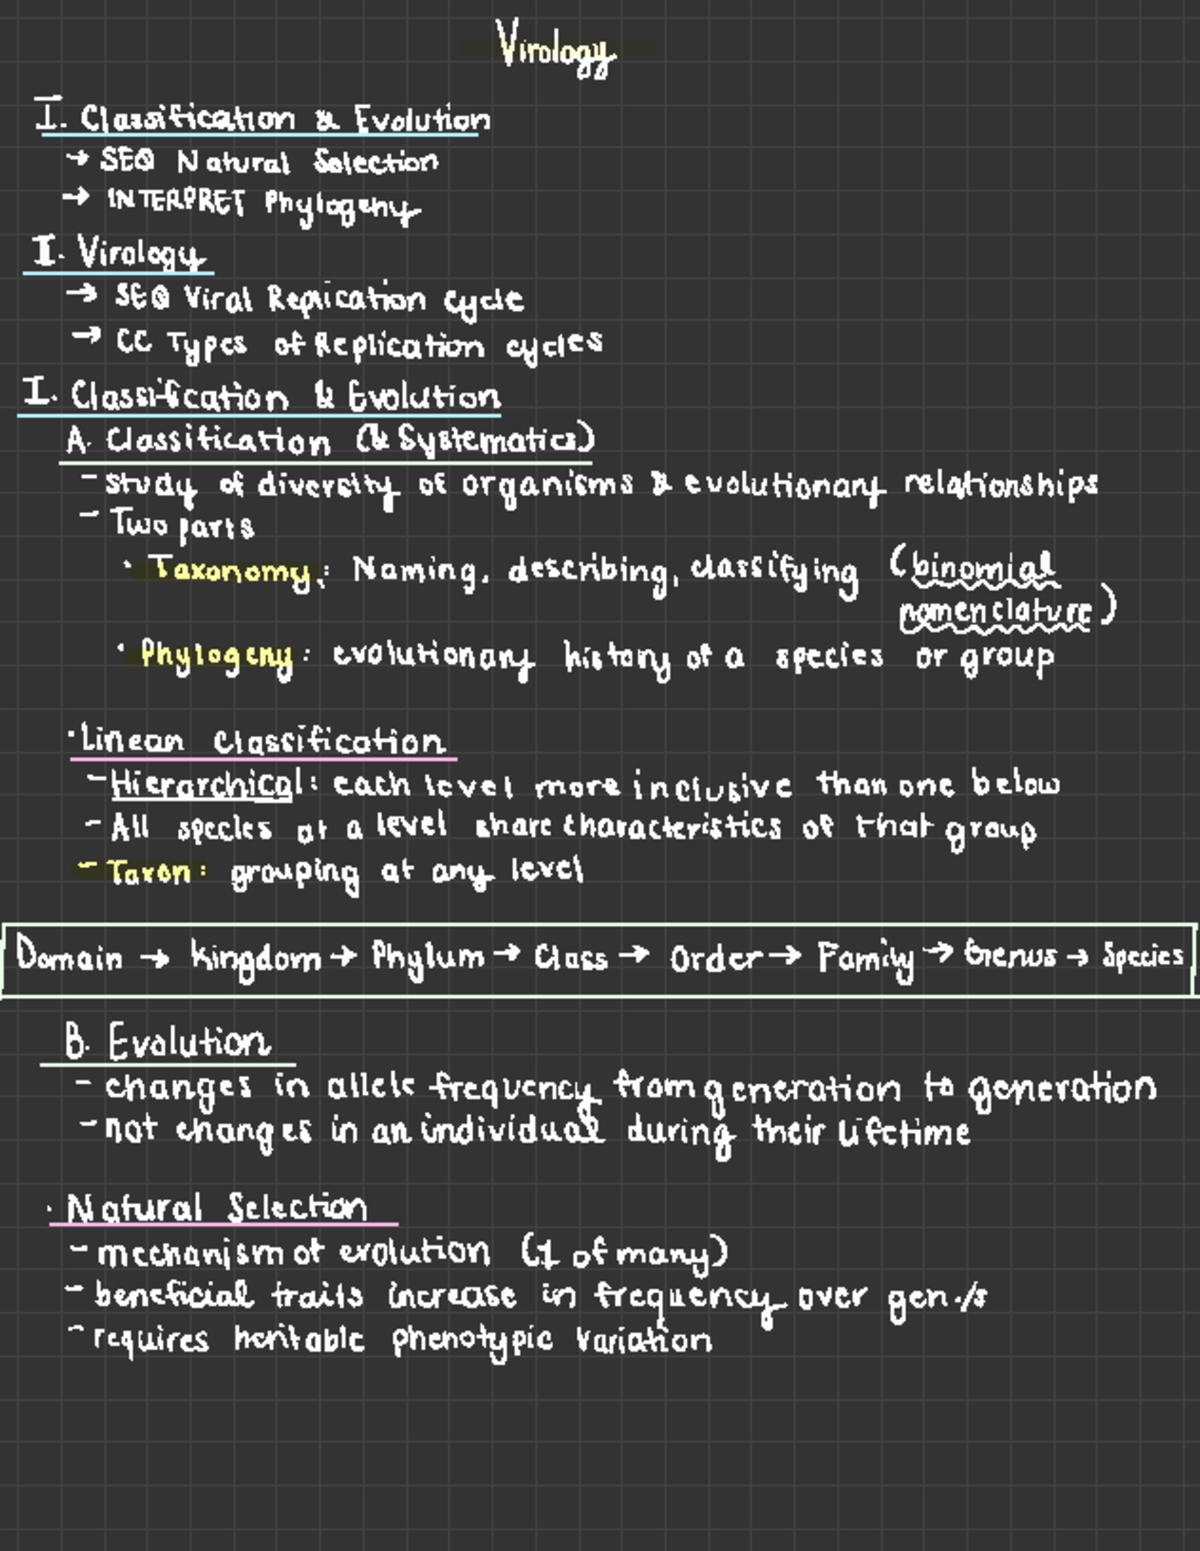 Virology
I. Classification & Evolution
→ SEQ Natural Selection
→ INTERPRET Phylogeny
I. Virology
→ SEQ Viral Replication cycle
→ CC Types of Replication cycles
I. Classification & Evolution
A. Classification (& Systematics)
- study of diversity of organisms & evolutionary relationships
- Two parts
· Taxonomy: Naming, describing, classifying (binomial
nomenclature)
· Phylogeny: evolutionary history of a species or group
· Linean classification
- Hierarchical: each level more inclusive than one below
- All species at a level share characteristics of that group
- Taxon: grouping at any level
Domain → Kingdom → Phylum → Class → Order → Family → Genus → Species
B. Evolution
- changes in allele frequency from generation to generation
- not changes in an individual during their lifetime
· Natural Selection
- mechanism of evolution (1 of many)
- beneficial traits increase in frequency over gen./s
- requires heritable phenotypic variation